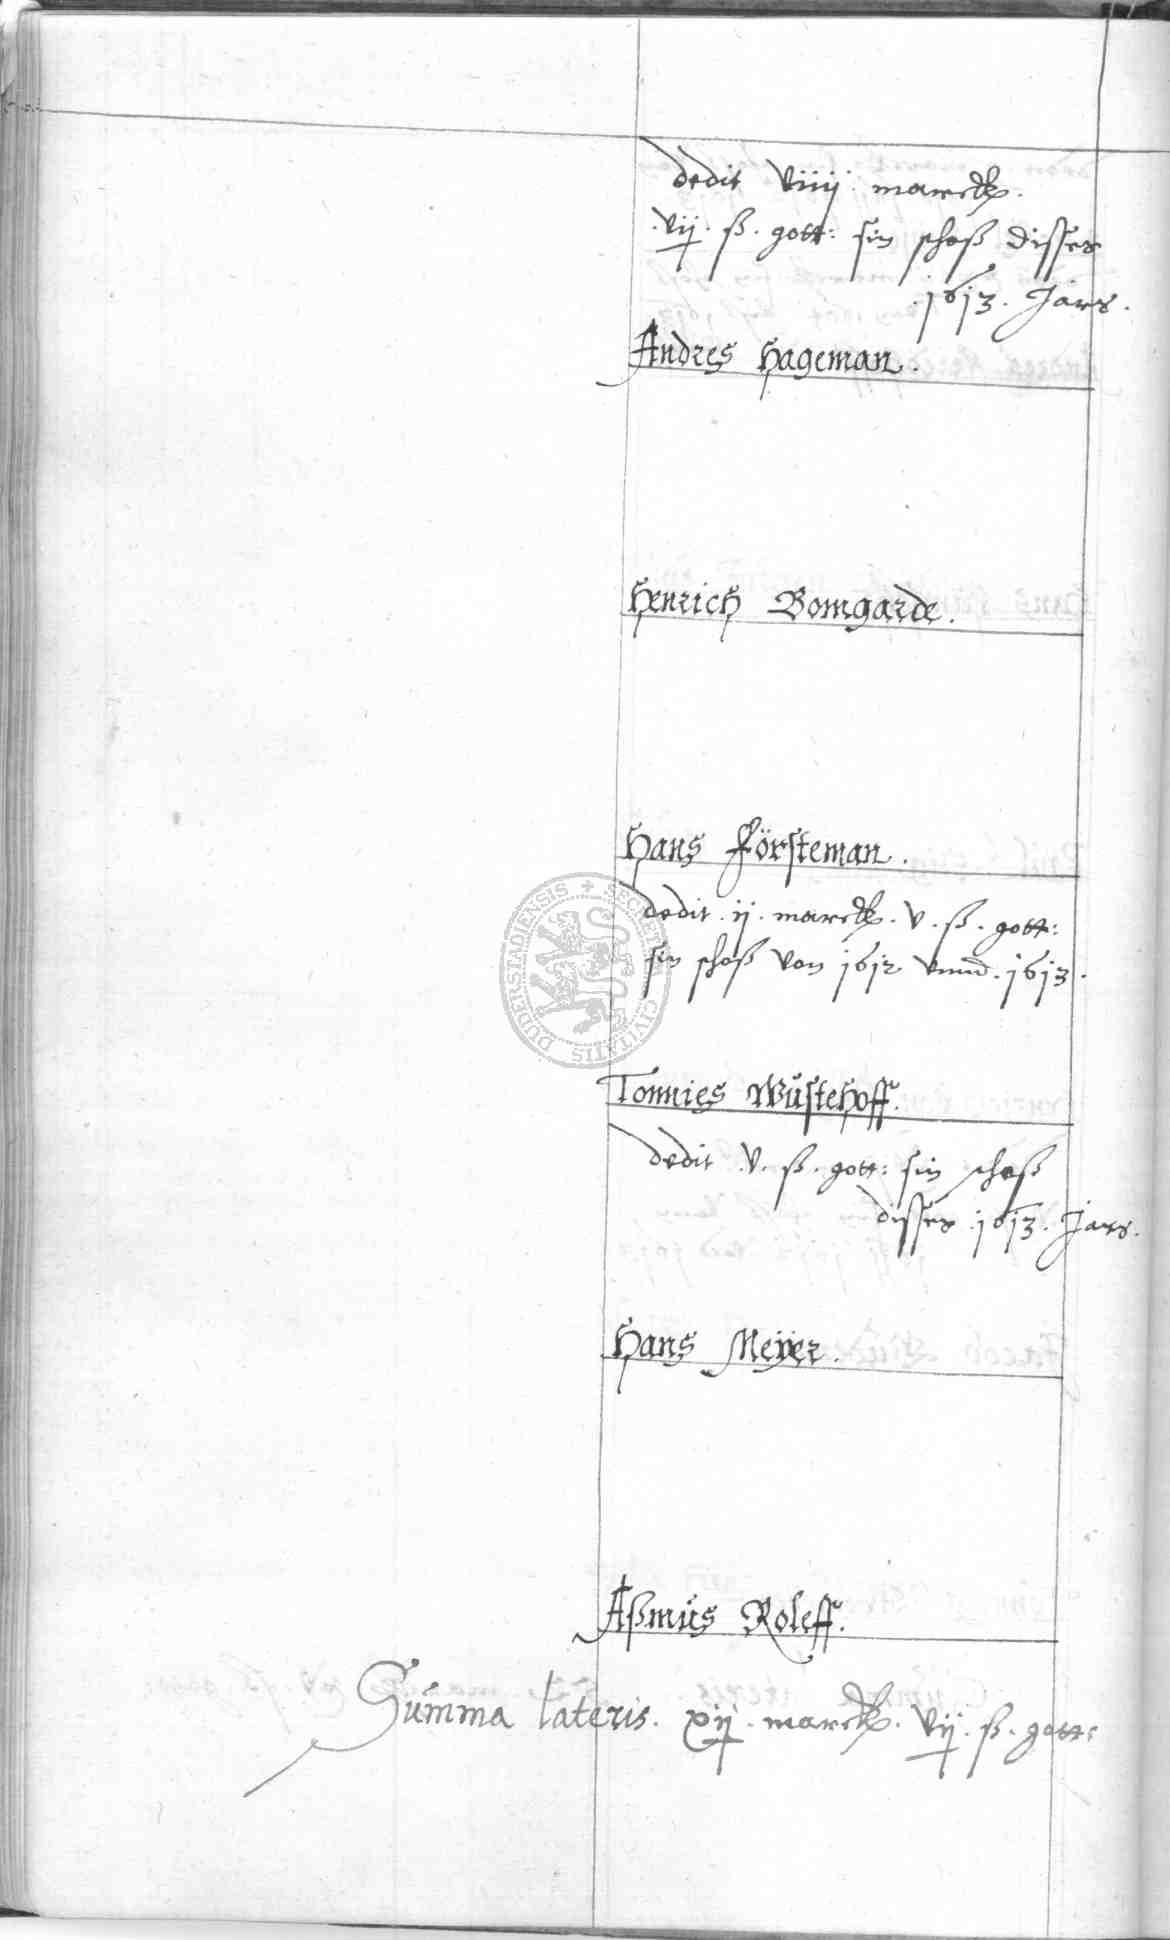 dedit viiij marck
.vij. ß. gott: sin schoß disses
.1613. Jars.
Andres Hageman.
Henrich Bomgarde.
Hans Försteman.
dedit .ij. marck. v. ß. gott:
sin schoß von 1612 vnnd .1613.
Tonnies Wüstehoff.
dedit .v. ß. gott: sin schoß
disses .1613. Jars.
Hans Meyer.
Aßmus Roleff.
Summa lateris. xij. marck. vij. ß. gott:
SECRETUM CIVITATIS DUDERSTADIENSIS